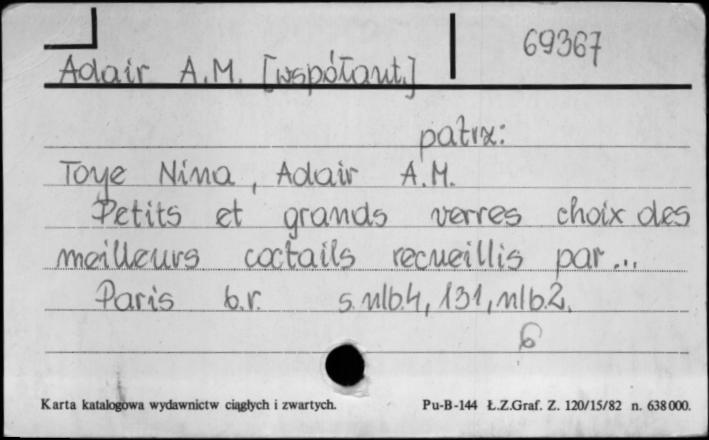 69367
Adair A.M. [współaut.]
patrz:
Toye Nina, Adair A.M.
Petits et grands verres choix des
meilleurs coctails recueillis par...
Paris b.r. s.nlb.4, 131, nlb.2.
6
Karta katalogowa wydawnictw ciągłych i zwartych. Pu-B-144 Ł.Z.Graf. Z. 120/15/82 n. 638000.